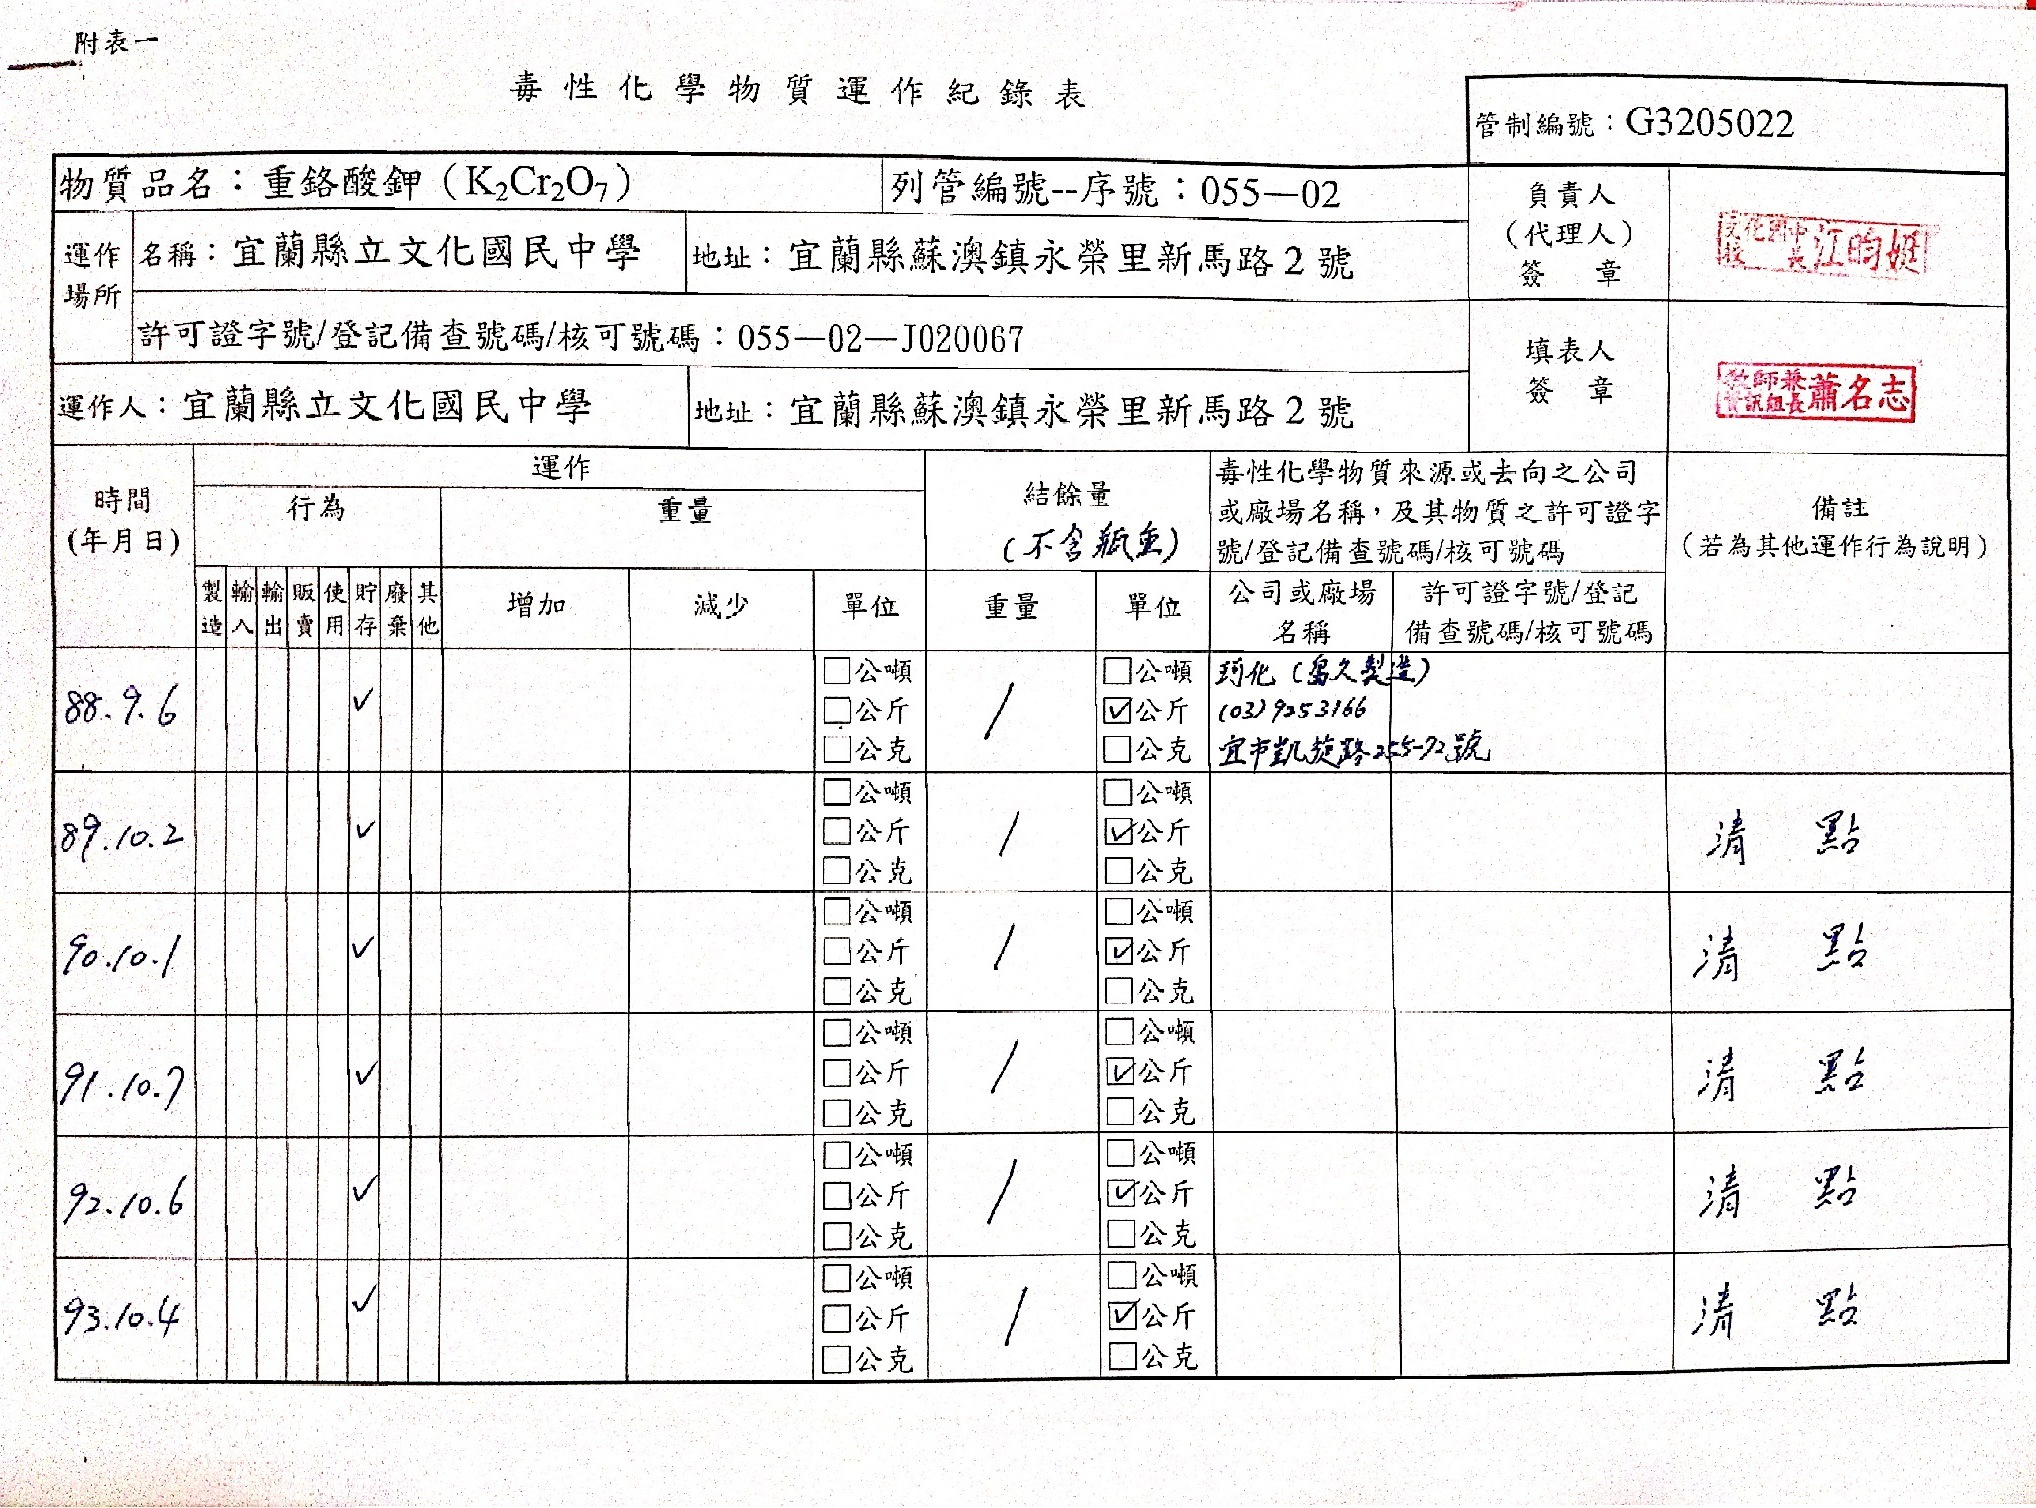 附表一
毒性化學物質運作紀錄表
管制編號：G3205022
物質品名：重鉻酸鉀（K₂Cr₂O₇） 列管編號--序號：055—02
負責人
（代理人）
簽　章
江昀娗
運作
場所
名稱：宜蘭縣立文化國民中學 地址：宜蘭縣蘇澳鎮永榮里新馬路2號
許可證字號/登記備查號碼/核可號碼：055—02—J020067
填表人
簽　章
教師兼
資訊組長 蕭名志
運作人：宜蘭縣立文化國民中學 地址：宜蘭縣蘇澳鎮永榮里新馬路2號
時間
(年月日)
運作
行為 重量
結餘量
(不含瓶重)
毒性化學物質來源或去向之公司
或廠場名稱，及其物質之許可證字
號/登記備查號碼/核可號碼
備註
（若為其他運作行為說明）
製造 輸入 輸出 販賣 使用 貯存 廢棄 其他 增加 減少 單位 重量 單位
公司或廠場
名稱
許可證字號/登記
備查號碼/核可號碼
88.9.6 ✓ □公噸 □公斤 □公克 / □公噸 ☑公斤 □公克
(03)9253166
宜市凱旋路255-72號
89.10.2 ✓ □公噸 □公斤 □公克 / □公噸 ☑公斤 □公克 清點
90.10.1 ✓ □公噸 □公斤 □公克 / □公噸 ☑公斤 □公克 清點
91.10.7 ✓ □公噸 □公斤 □公克 / □公噸 ☑公斤 □公克 清點
92.10.6 ✓ □公噸 □公斤 □公克 / □公噸 ☑公斤 □公克 清點
93.10.4 ✓ □公噸 □公斤 □公克 / □公噸 ☑公斤 □公克 清點